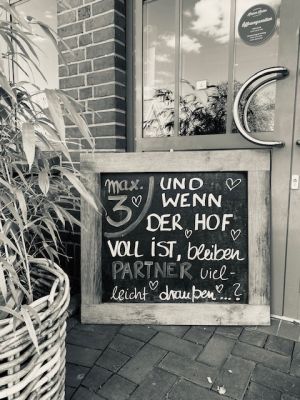 Öffnungszeiten
max.
3
UND
WENN
DER HOF
VOLL IST, bleiben
PARTNER viel-
leicht draußen...?